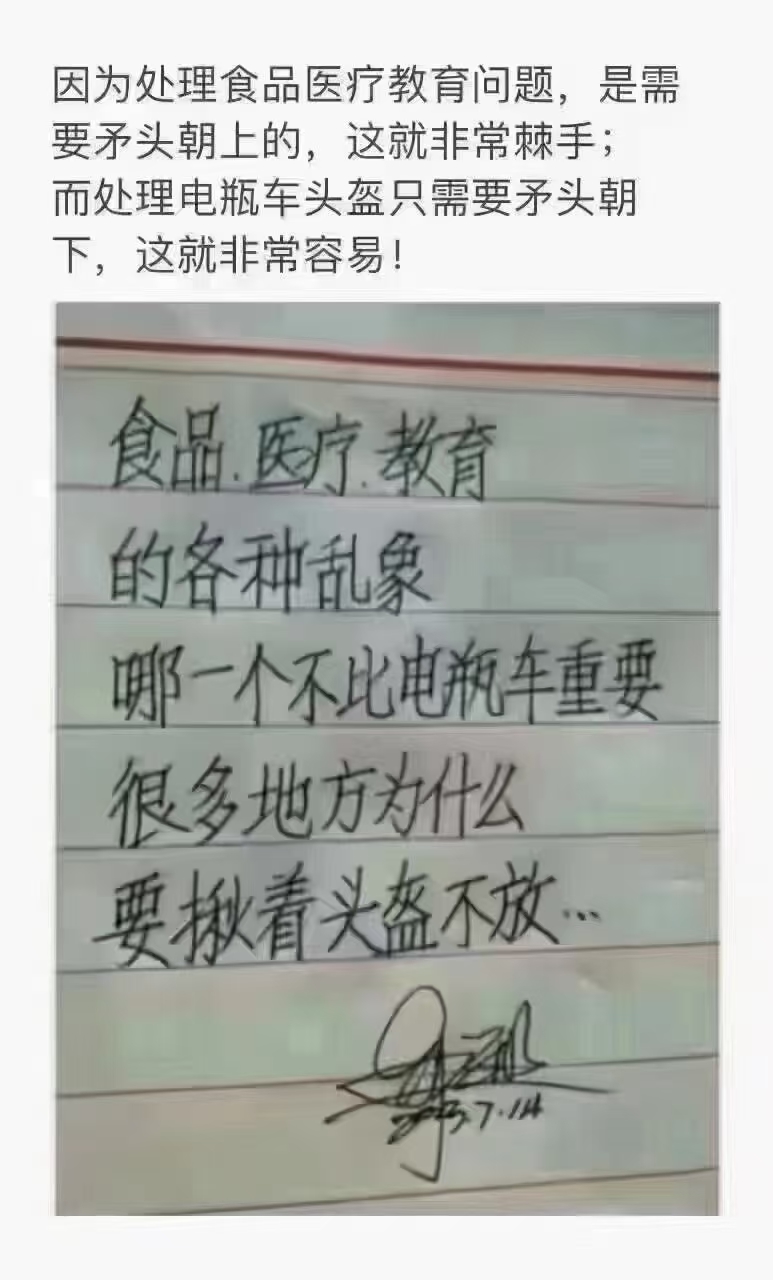 因为处理食品医疗教育问题，是需
要矛头朝上的，这就非常棘手；
而处理电瓶车头盔只需要矛头朝
下，这就非常容易！
食品.医疗.教育
的各种乱象
哪一个不比电瓶车重要
很多地方为什么
要揪着头盔不放...
2023.7.14